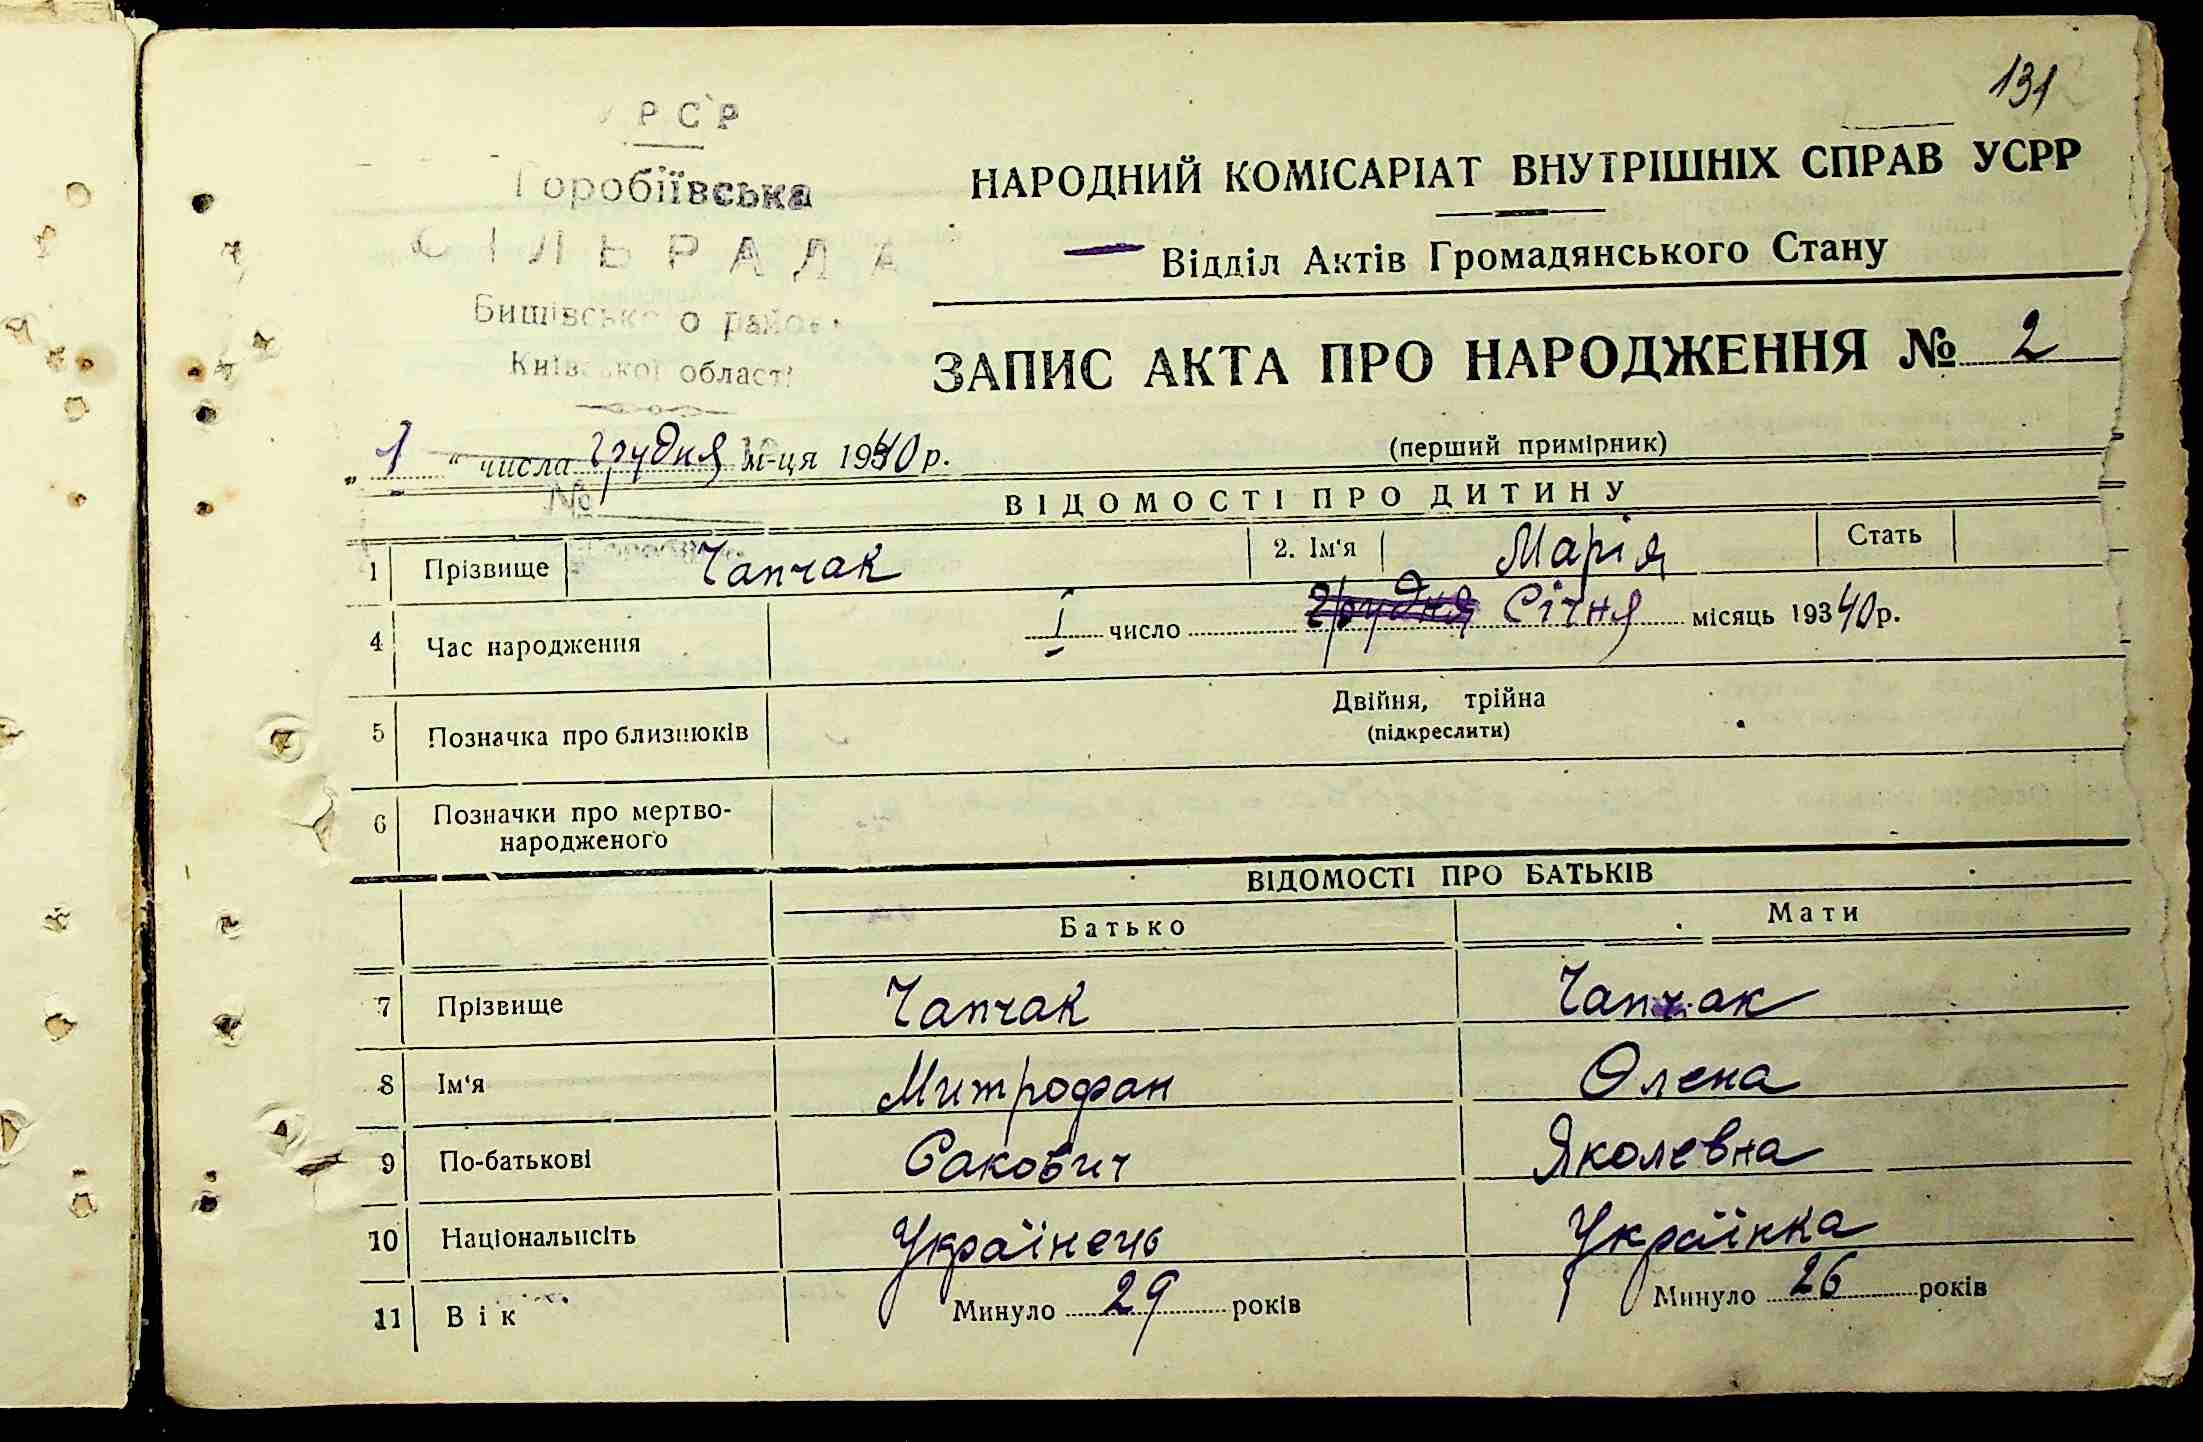 131
РСР
Горобіївська
СІЛЬРАДА
Бишівського району
Київської області
НАРОДНИЙ КОМІСАРІАТ ВНУТРІШНІХ СПРАВ УСРР
Відділ Актів Громадянського Стану
ЗАПИС АКТА ПРО НАРОДЖЕННЯ № 2
(перший примірник)
„1“ числа грудня м-ця 1940 р.
№
ВІДОМОСТІ ПРО ДИТИНУ
1 Прізвище Чапчак 2. Ім'я Марія Стать
4 Час народження 1 число грудня Січня місяць 1940 р.
5 Позначка про близнюків Двійня, трійна
(підкреслити)
6 Позначки про мертво-
народженого
ВІДОМОСТІ ПРО БАТЬКІВ
Батько Мати
7 Прізвище Чапчак Чапчак
8 Ім'я Митрофан Олена
9 По-батькові Сакович Яколевна
10 Національнсіть Українець Українка
11 Вік Минуло 29 років Минуло 26 років